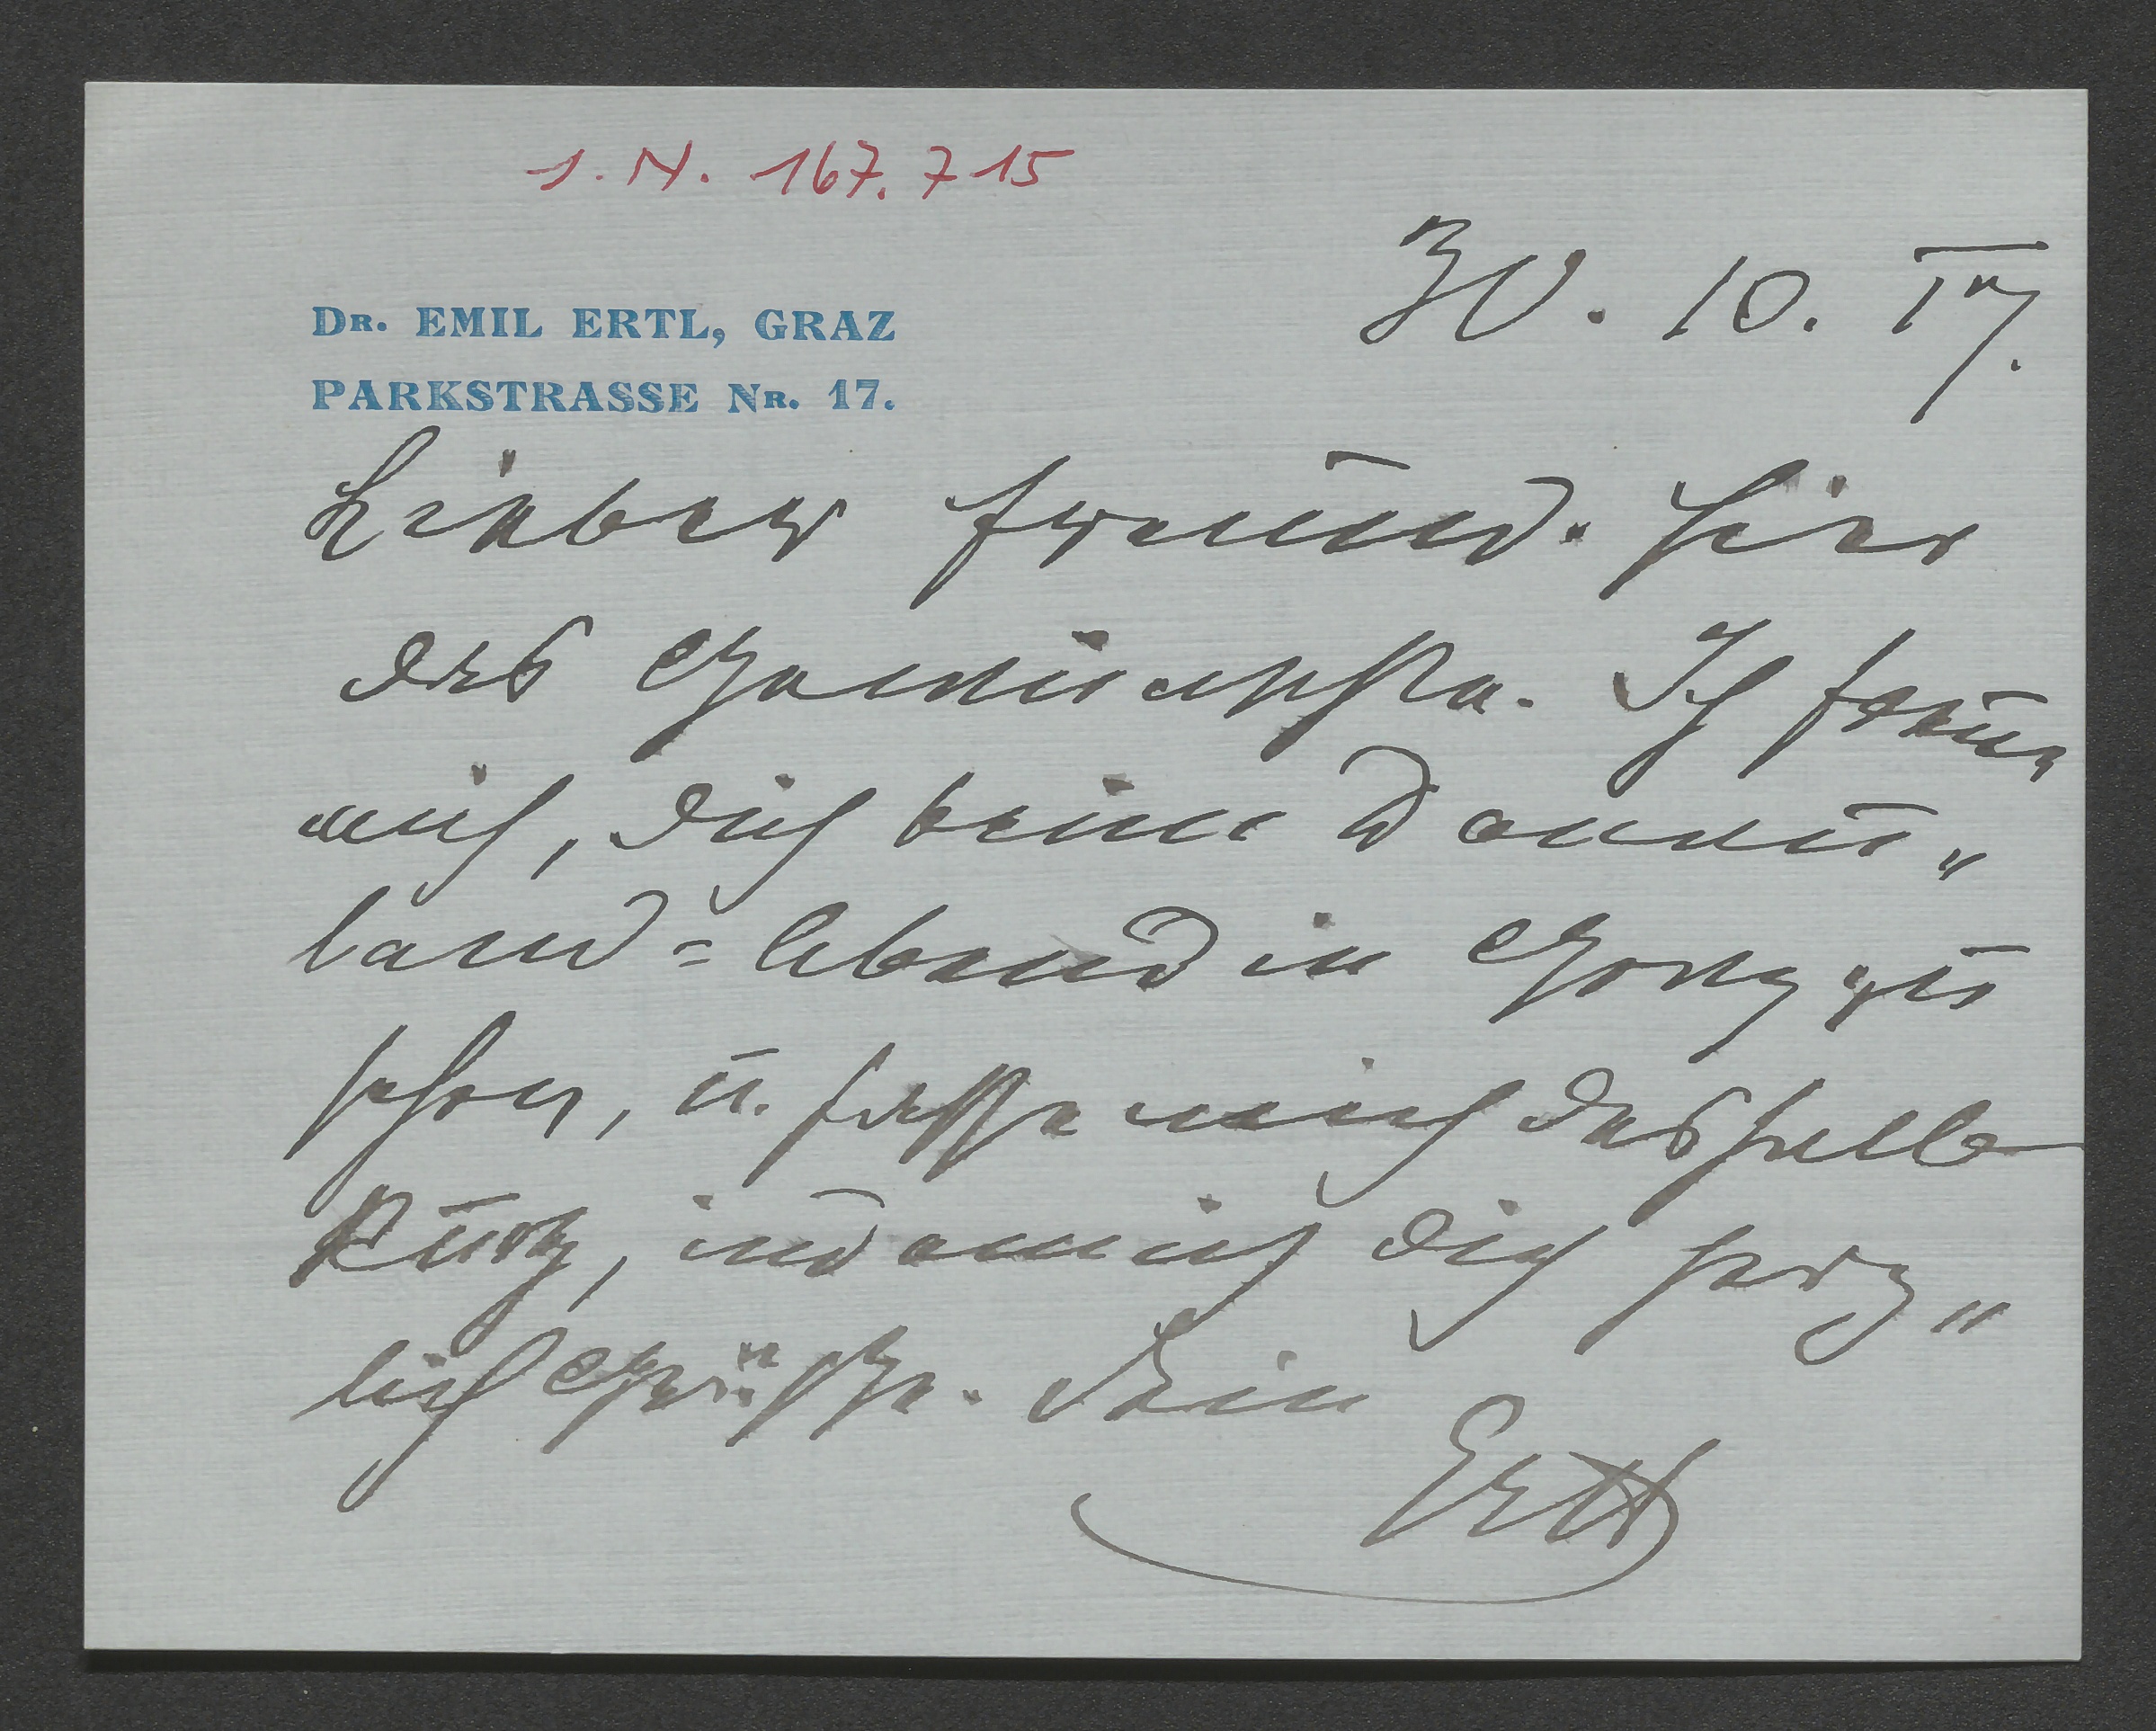 J. N. 167.715
30. 10. 17.
DR. EMIL ERTL, GRAZ
PARKSTRASSE NR. 17.
Lieber Freund. Hier
das Gewünschte. Ich freue
mich, dich beim Donau„
land=Abend in Graz zu
sehen, u. fasse mich deshalb
kurz, indem ich dich herz„
lich grüße. Dein
Ertl